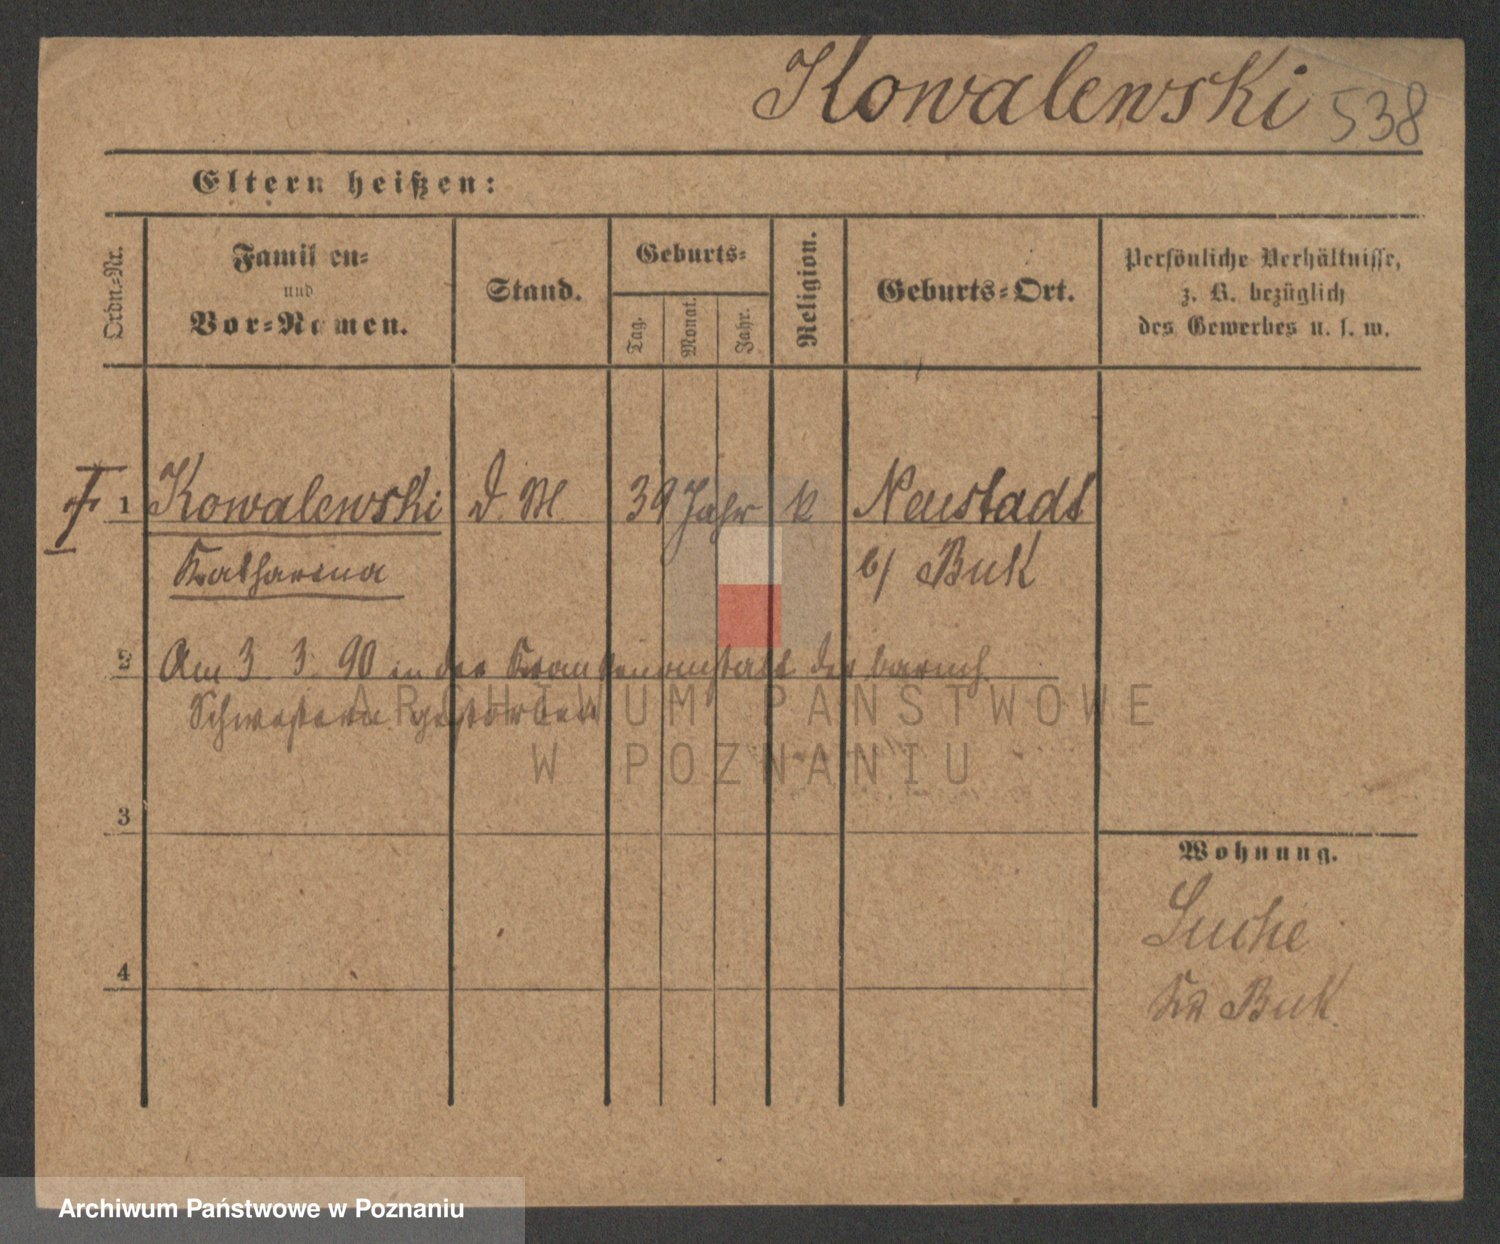 Kowalewski 538
Eltern heißen:
Ordn.-Nr.
Famil en-
und
Vor-Namen.
Stand.
Geburts-
Tag.
Monat.
Jahr.
Religion.
Geburts-Ort.
Persönliche Verhältnisse,
z. B. bezüglich
des Gewerbes u. s. w.
1 Kowalewski d. M 39 Jahr k Neustadt
Katharina b/ Buk
2 Am 3. 3. 90 in der Krankenanstalt der barmh
Schwestern gestorben
3
4
Wohnung.
Suche
Kr Buk
ARCHIWUM PAŃSTWOWE
W POZNANIU
Archiwum Państwowe w Poznaniu